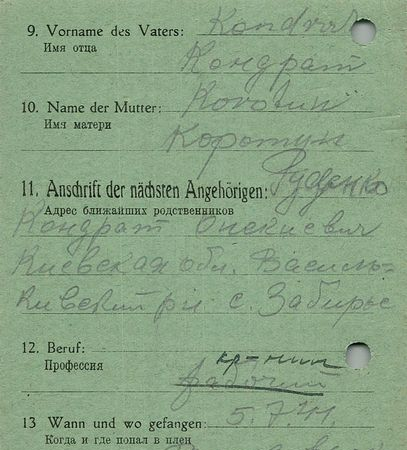 9. Vorname des Vaters: Kondrat
Имя отца
Кондрат
10. Name der Mutter: Korotun
Имя матери
Коротун
11. Anschrift der nächsten Angehörigen: Руденко
Адрес ближайших родственников
Кондрат
Киевская обл. Василь-
ковский р-н с. Забирье
12. Beruf: кр-нин
Профессия
рабочий
13 Wann und wo gefangen: 5.7.41.
Когда и где попал в плен